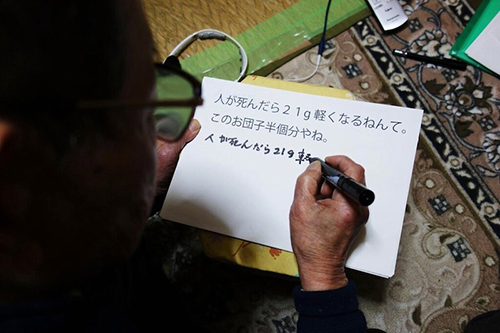 人が死んだら２１ｇ軽くなるねんて。
このお団子半個分やね。
人が死んだら21g軽